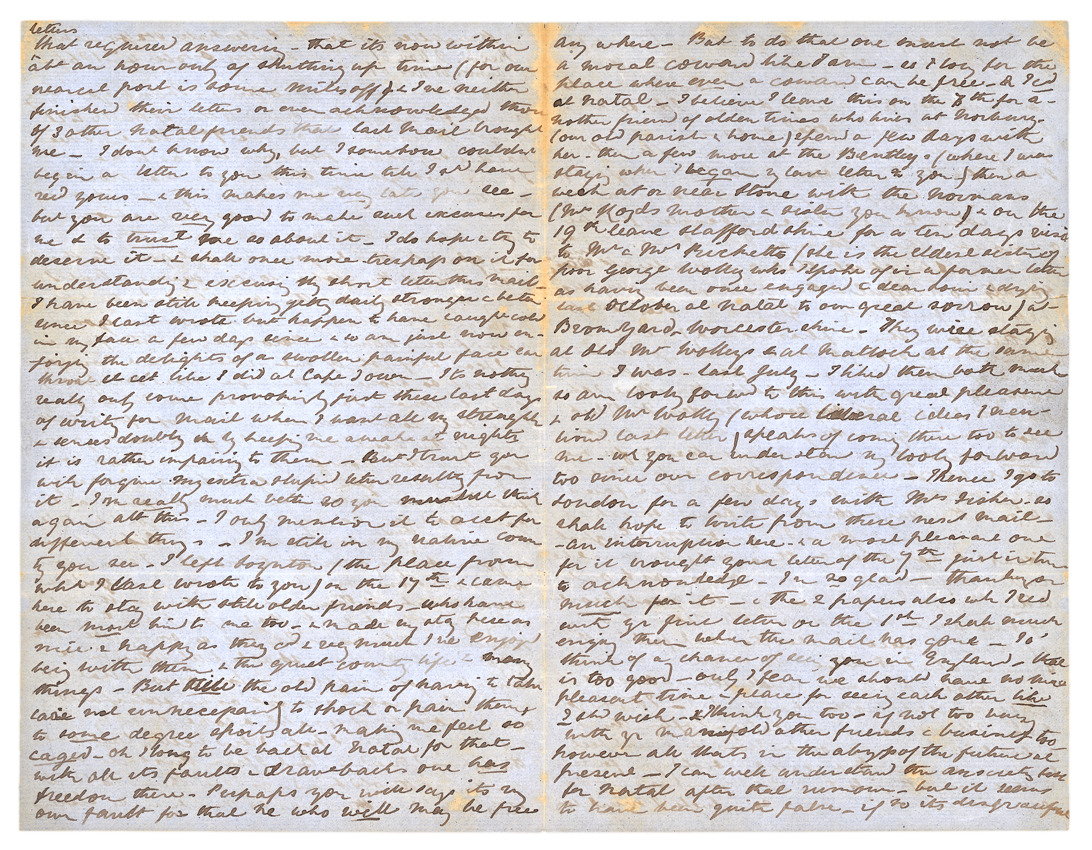 letters
that required answering - that its now within
abt an hour only of shutting up time (for our
nearest post is some miles off) & I've neither
finished this letter or even acknowledged those
of 3 other Natal friends that last mail brought
me - I dont know why, but I somehow couldnt
begin a letter to you this time till I shd have
recd yours - & this makes me very late you see -
but you are very good to make such excuses for
me & to trust me so about it - I do hope & try to
deserve it - & shall once more trespass on it for
understanding & excusing my short letter this mail -
I have been still keeping getting daily stronger & better
since I last wrote but happen to have caught cold
in my face a few days since & so am just now en-
joying the delights of a swollen painful face
like I did at Cape Town - Its nothing
really only come provokingly just these last days
of writing for mail when I want all my strength
& senses doubly & by keeping me awake at nights
it is rather impairing to them - But I trust you
will forgive my extra stupid letter resulting from
it - I'm really much better so you mustnt think
again abt this - I only mention it to acct for
different things - I'm still in my native county
you see - I left Boynton (the place from
which I last wrote to you) on the 17th & came
here to stay with still older friends - who have
been most kind to me too - & made my stay here as
nice & happy as they cd & very much I've enjoyd
being with them & the quiet country life & many
things - But still the old pain of having to take
care not unnecessarily to shock or pain them
to some degree spoils all - making me feel so
caged - oh I long to be back at Natal for that -
with all its faults & drawbacks one has
freedom there - Perhaps you will say its my
own fault for that he who will may be free
any where - But to do that one must not be
a moral coward like I am - so I long for the
place where even a coward can be free - & I cd
at Natal - I believe I leave this on the 7th for a-
nother friend of olden times who lives at Norbury -
(our old parish & home) spend a few days with
her - then a few more at the Bentleys (where I was
staying when I began my last letter to you) then a
week at or near Stone with the Normans
(Mrs Koyds mother & sister you know) & on the
19th leave Staffordshire for a ten days visit
to Mr & Mrs Ricketts (she is the eldest sister of
poor George Wolley who I spoke of in a former letter
as having been once engaged &
last October at Natal to our great sorrow) at
Bromyard, Worcestershire - They were staying
at old Mr Wolleys & at Matlock at the same
time I was - last July - I liked them both much
so am looking forwd to this with great pleasure
& old Mr Wolley (whose liberal ideas I men-
tiond last letter) speaks of coming there too to see
me - wh you can understand my looking forward
too since our correspondence - Thence I go to
London for a few days with Mrs Fisher - so
shall hope to write from there next mail -
- an interruption here - & a most pleasant one
for it brought your letter of the 7th just in time
to acknowledge - I'm so glad - thank you
much for it - & the 2 papers also wh I recd
with yr first letter on the 1st I shall much
enjoy them when the mail has gone - To
think of a chance of seeing you in England - that
is too good - only I fear we should have no nice
pleasant time - place for seeing each other like
I shd wish - & I think you too - if not too busy
with yr manifold other friends & business too
however all thats in the abyss of the future at
present - I can well understand the anxiety
for Natal after that rumour - but it seems
to have been quite false - if so its disgraceful